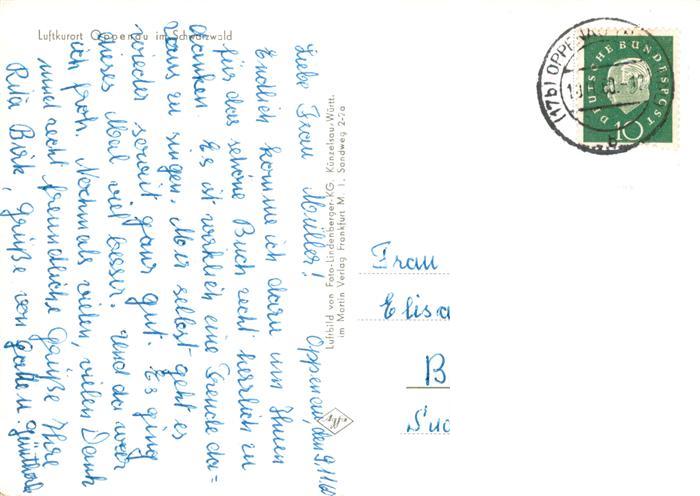 Luftkurort Oppenau im Schwarzwald
Oppenau, den 9.11.60
Liebe Frau Müller!
Endlich komme ich dazu um Ihnen
für das schöne Buch recht herzlich zu
danken. Es ist wirklich eine Freude da-
raus zu singen. Mir selbst geht es
wieder soweit ganz gut. Es ging
dieses Mal viel besser. Und da war
ich froh. Nochmals vielen, vielen Dank
und recht freundliche Grüße Ihre
Rita Birk, Grüße von Gatten u.
Luftbild von Foto-Lindenberger-KG. Künzelsau/Württ.
im Martin Verlag Frankfurt M. 1, Sandweg 2-2a
(17b) OPPENAU
b
DEUTSCHE BUNDESPOST
10
Frau
Elisa
B